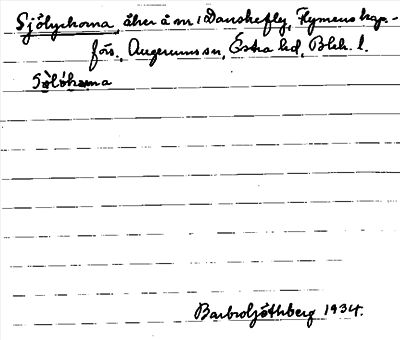 Sjölyckorna, åker å nr 1 Danskefly, Flymens kap.-
förs., Augerums sn, Östra hd, Blek. l.
Sölökorna
Barbro Ljöthberg 1934.